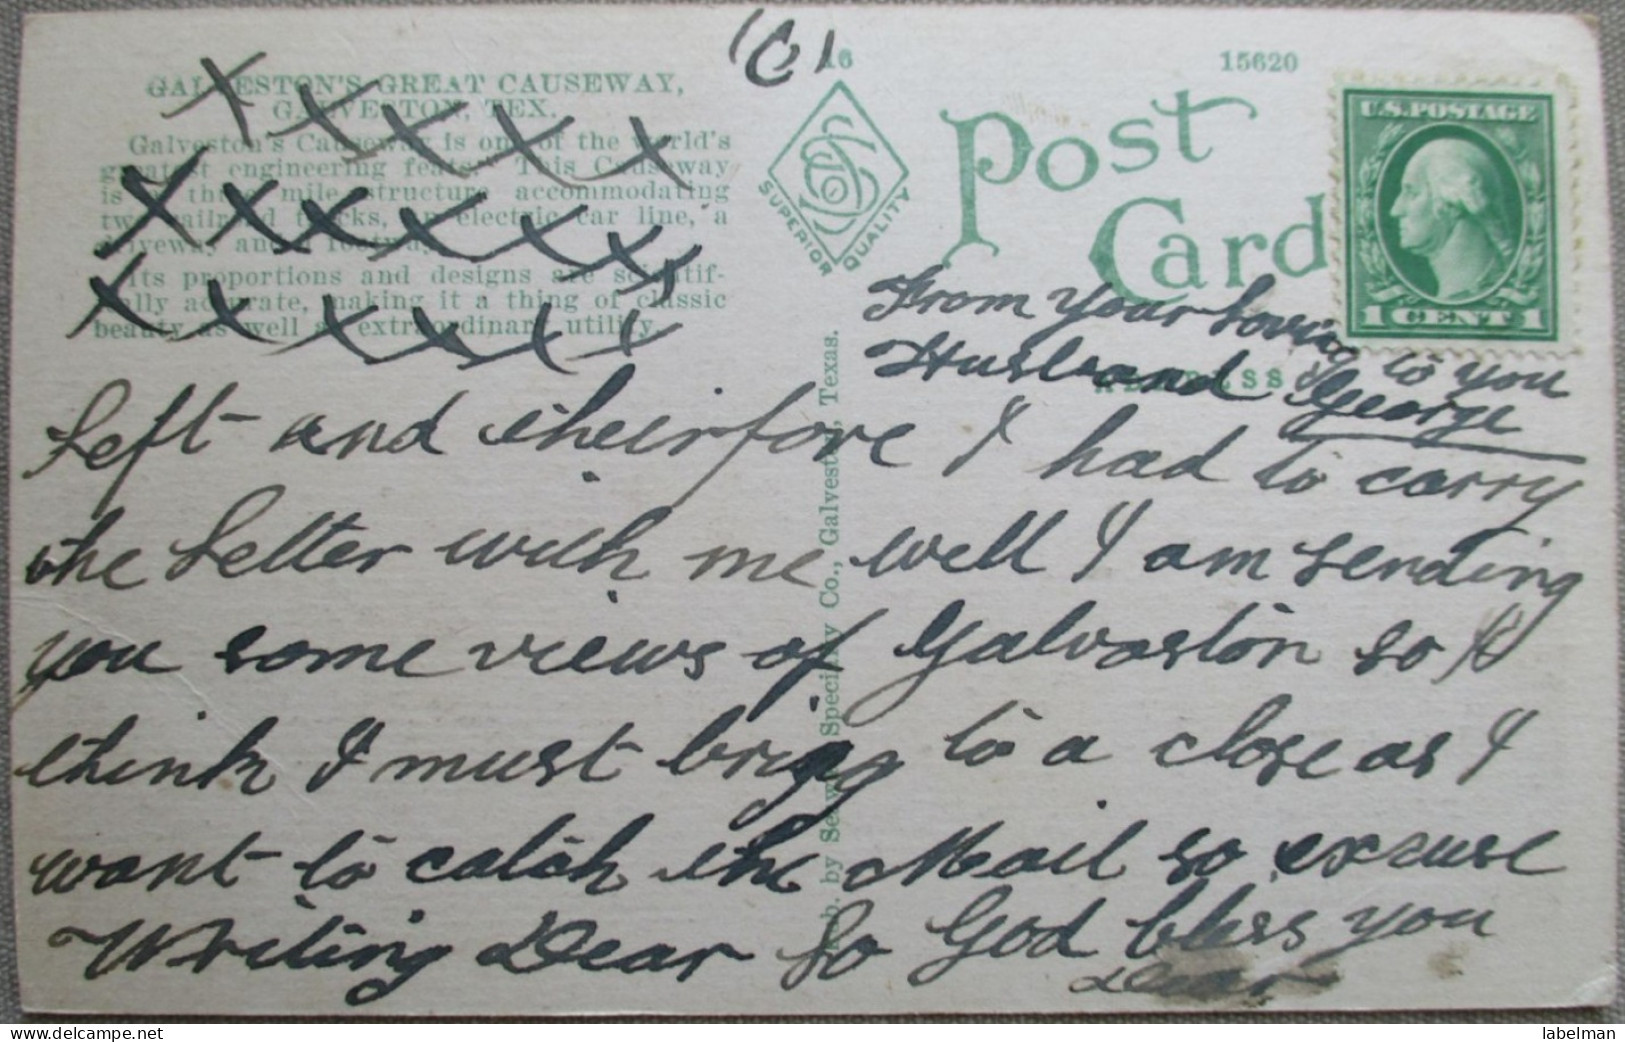 (C)
16
15620
GALVESTON'S GREAT CAUSEWAY,
GALVESTON, TEX.
Galveston's Causeway is one of the world's
greatest engineering feats. This Causeway
is a three mile structure accommodating
two railroad tracks, an electric car line, a
driveway and a footway.
Its proportions and designs are scientif-
ically accurate, making it a thing of classic
beauty as well as extraordinary utility.
x x x x x
x x x x x x
x x x x x x
SUPERIOR QUALITY
Post Card
U.S. POSTAGE
1 CENT 1
ADDRESS
Pub. by Seawall Specialty Co., Galveston, Texas.
From your loving
Husband George to you
left and theirfore I had to carry
the letter with me well I am sending
you some views of Galvaston so I
think I must bring to a close as I
want to catch the Mail so excuse
Writing Dear So God bless you
Dear
labelman
delcampe.net